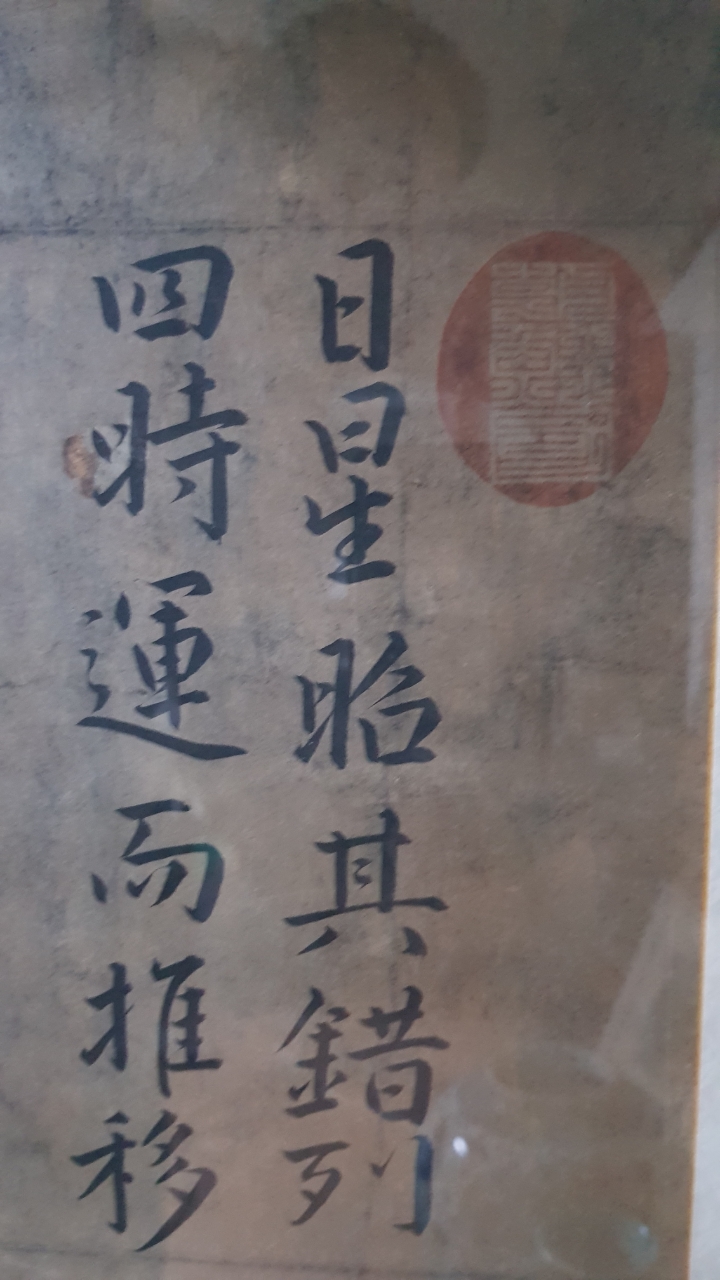 日星昭其錯列
四時運而推移